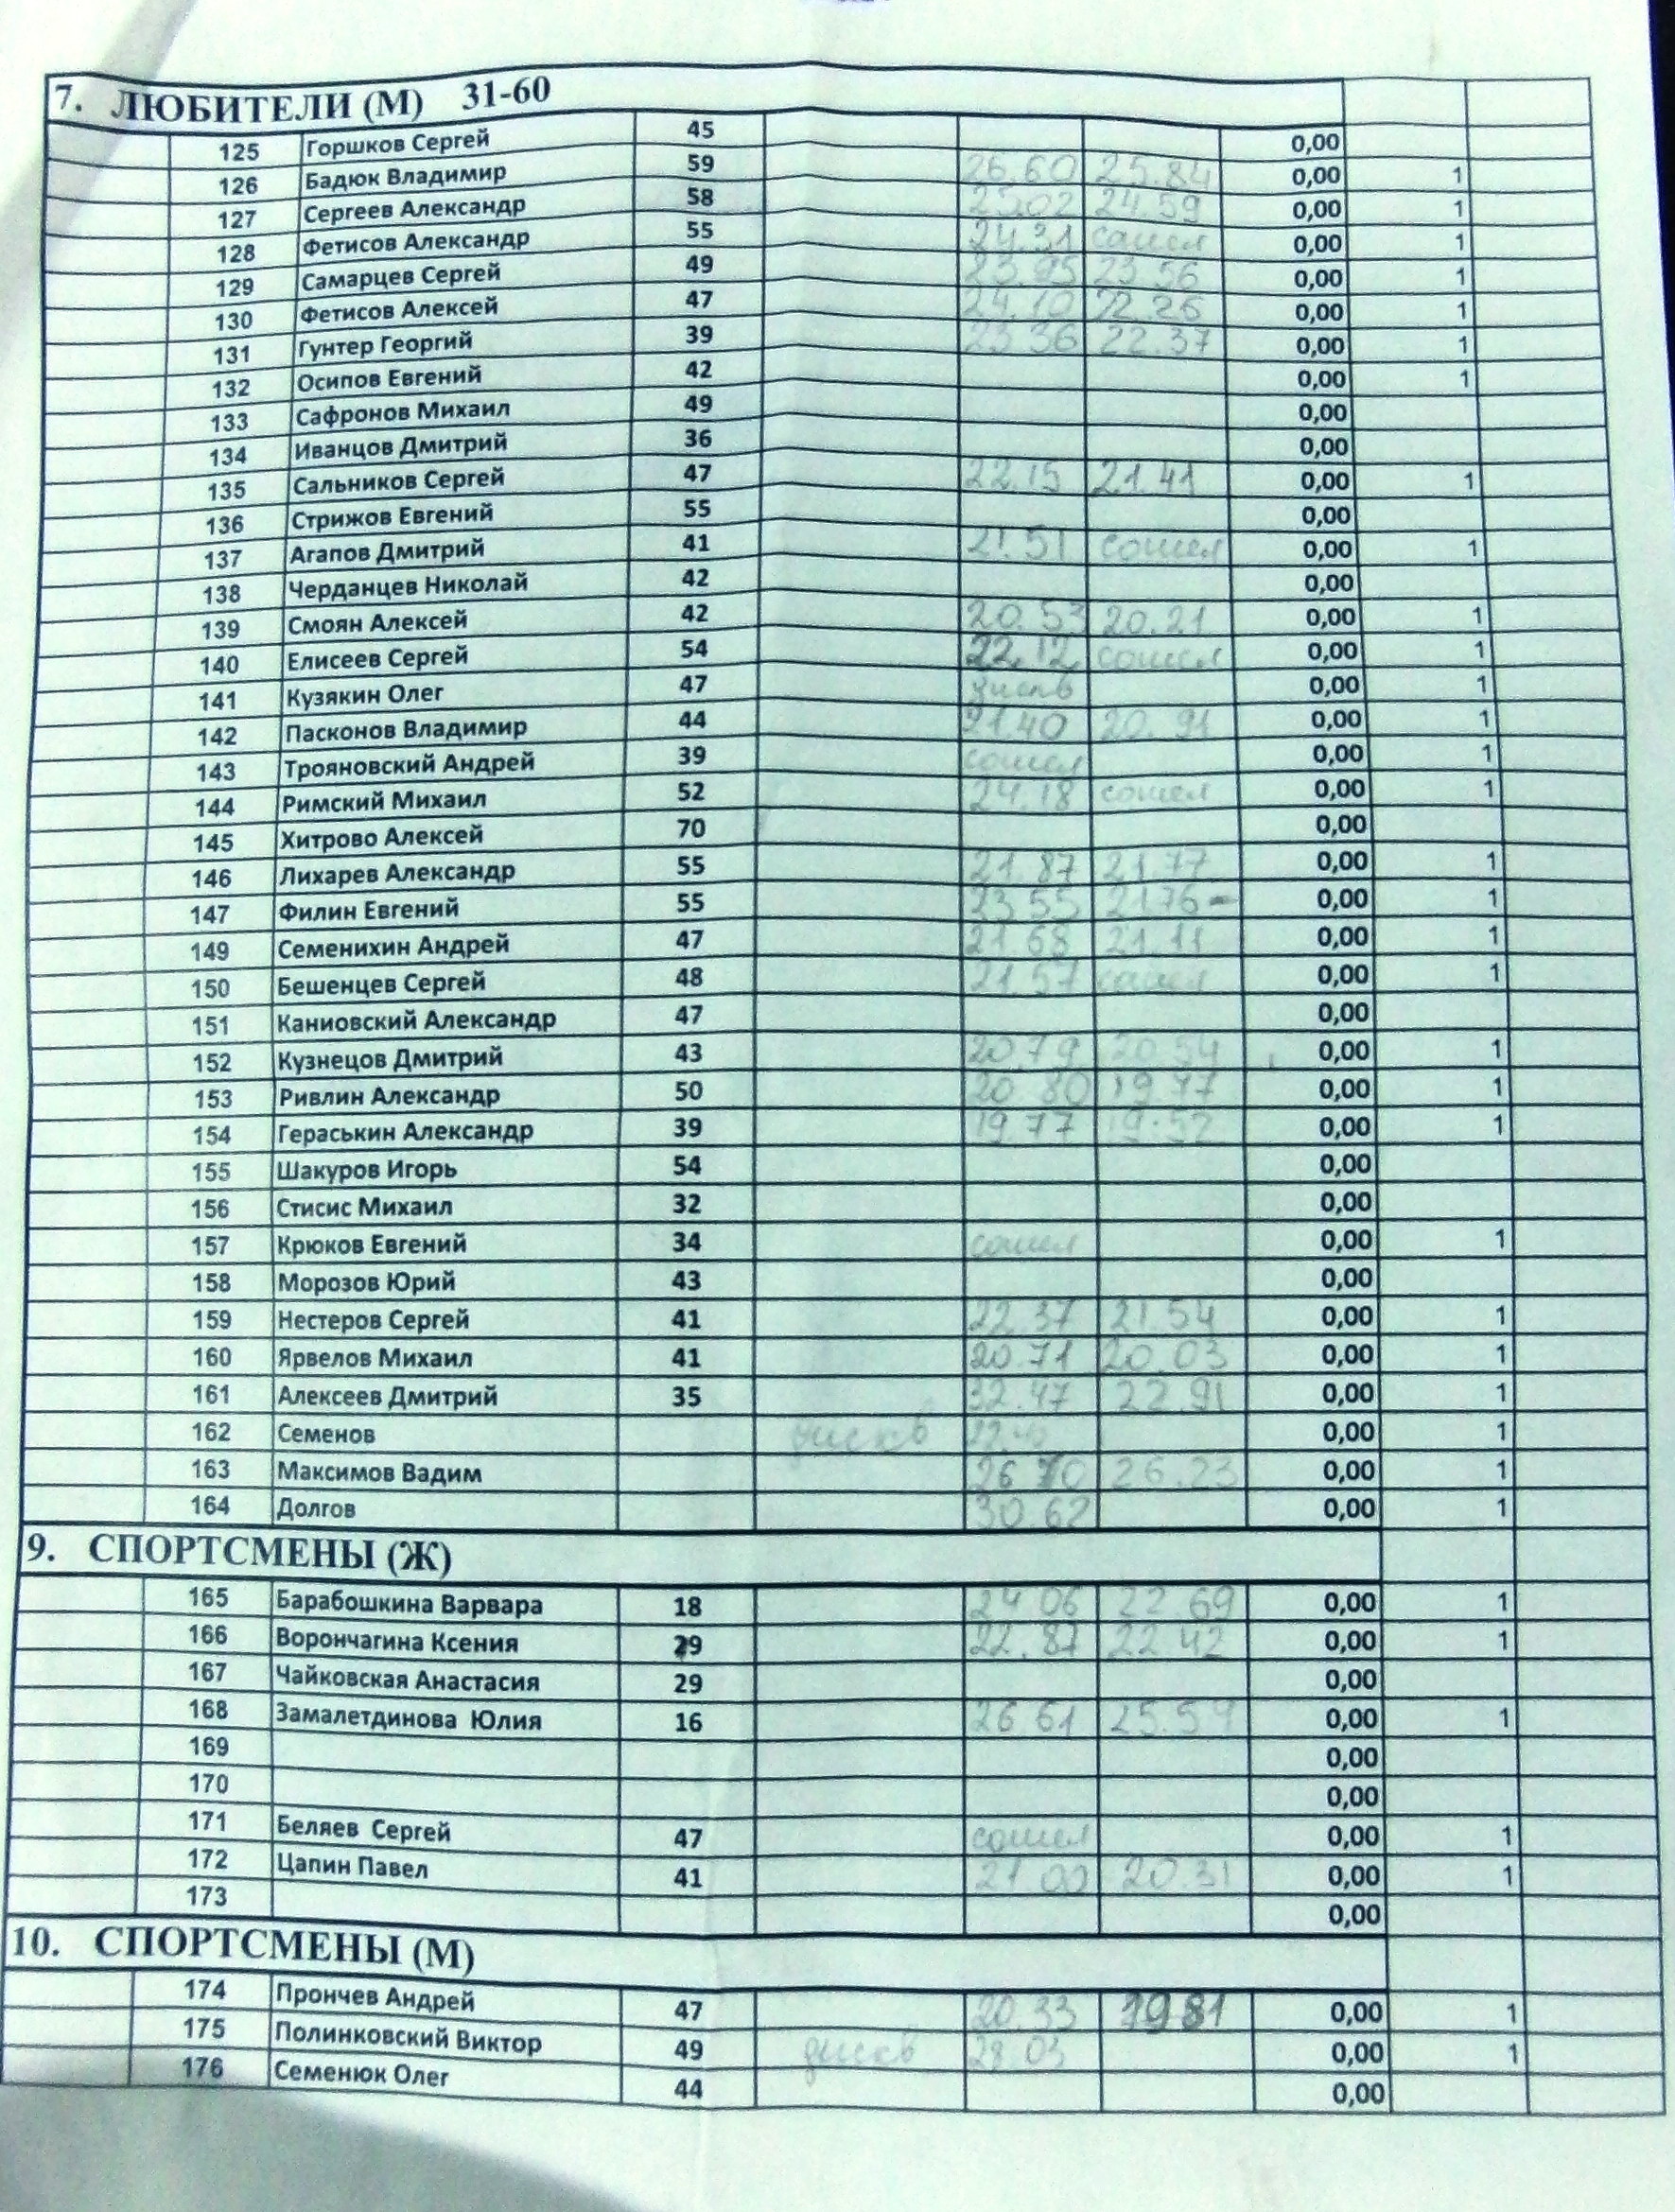 7. ЛЮБИТЕЛИ (М) 31-60
125 Горшков Сергей 45 0,00
126 Бадюк Владимир 59 26.60 25.84 0,00 1
127 Сергеев Александр 58 24.59 0,00 1
128 Фетисов Александр 55 24.31 сошел 0,00 1
129 Самарцев Сергей 49 23.95 23.56 0,00 1
130 Фетисов Алексей 47 24.10 22.26 0,00 1
131 Гунтер Георгий 39 23.36 22.37 0,00 1
132 Осипов Евгений 42 0,00 1
133 Сафронов Михаил 49 0,00
134 Иванцов Дмитрий 36 0,00
135 Сальников Сергей 47 22.15 21.41 0,00 1
136 Стрижов Евгений 55 0,00
137 Агапов Дмитрий 41 21.51 сошел 0,00 1
138 Черданцев Николай 42 0,00
139 Смоян Алексей 42 20.53 20.21 0,00 1
140 Елисеев Сергей 54 22.12 сошел 0,00 1
141 Кузякин Олег 47 дискв 0,00 1
142 Пасконов Владимир 44 21.40 20.91 0,00 1
143 Трояновский Андрей 39 сошел 0,00 1
144 Римский Михаил 52 24.18 сошел 0,00 1
145 Хитрово Алексей 70 0,00
146 Лихарев Александр 55 21.87 21.77 0,00 1
147 Филин Евгений 55 23.55 21.76 - 0,00 1
149 Семенихин Андрей 47 21.68 21.11 0,00 1
150 Бешенцев Сергей 48 21.57 сошел 0,00 1
151 Каниовский Александр 47 0,00
152 Кузнецов Дмитрий 43 20.79 20.54 0,00 1
153 Ривлин Александр 50 20.80 19.77 0,00 1
154 Гераськин Александр 39 19.77 19.52 0,00 1
155 Шакуров Игорь 54 0,00
156 Стисис Михаил 32 0,00
157 Крюков Евгений 34 сошел 0,00 1
158 Морозов Юрий 43 0,00
159 Нестеров Сергей 41 22.37 21.54 0,00 1
160 Ярвелов Михаил 41 20.71 20.03 0,00 1
161 Алексеев Дмитрий 35 32.47 22.91 0,00 1
162 Семенов дискв 0,00 1
163 Максимов Вадим 26.70 26.23 0,00 1
164 Долгов 30.62 0,00 1
9. СПОРТСМЕНЫ (Ж)
165 Барабошкина Варвара 18 24.06 22.69 0,00 1
166 Ворончагина Ксения 29 22.87 22.42 0,00 1
167 Чайковская Анастасия 29 0,00
168 Замалетдинова Юлия 16 26.61 25.59 0,00 1
169 0,00
170 0,00
171 Беляев Сергей 47 сошел 0,00 1
172 Цапин Павел 41 21.00 20.31 0,00 1
173 0,00
10. СПОРТСМЕНЫ (М)
174 Прончев Андрей 47 20.33 19 81 0,00 1
175 Полинковский Виктор 49 дискв 28.03 0,00 1
176 Семенюк Олег 44 0,00